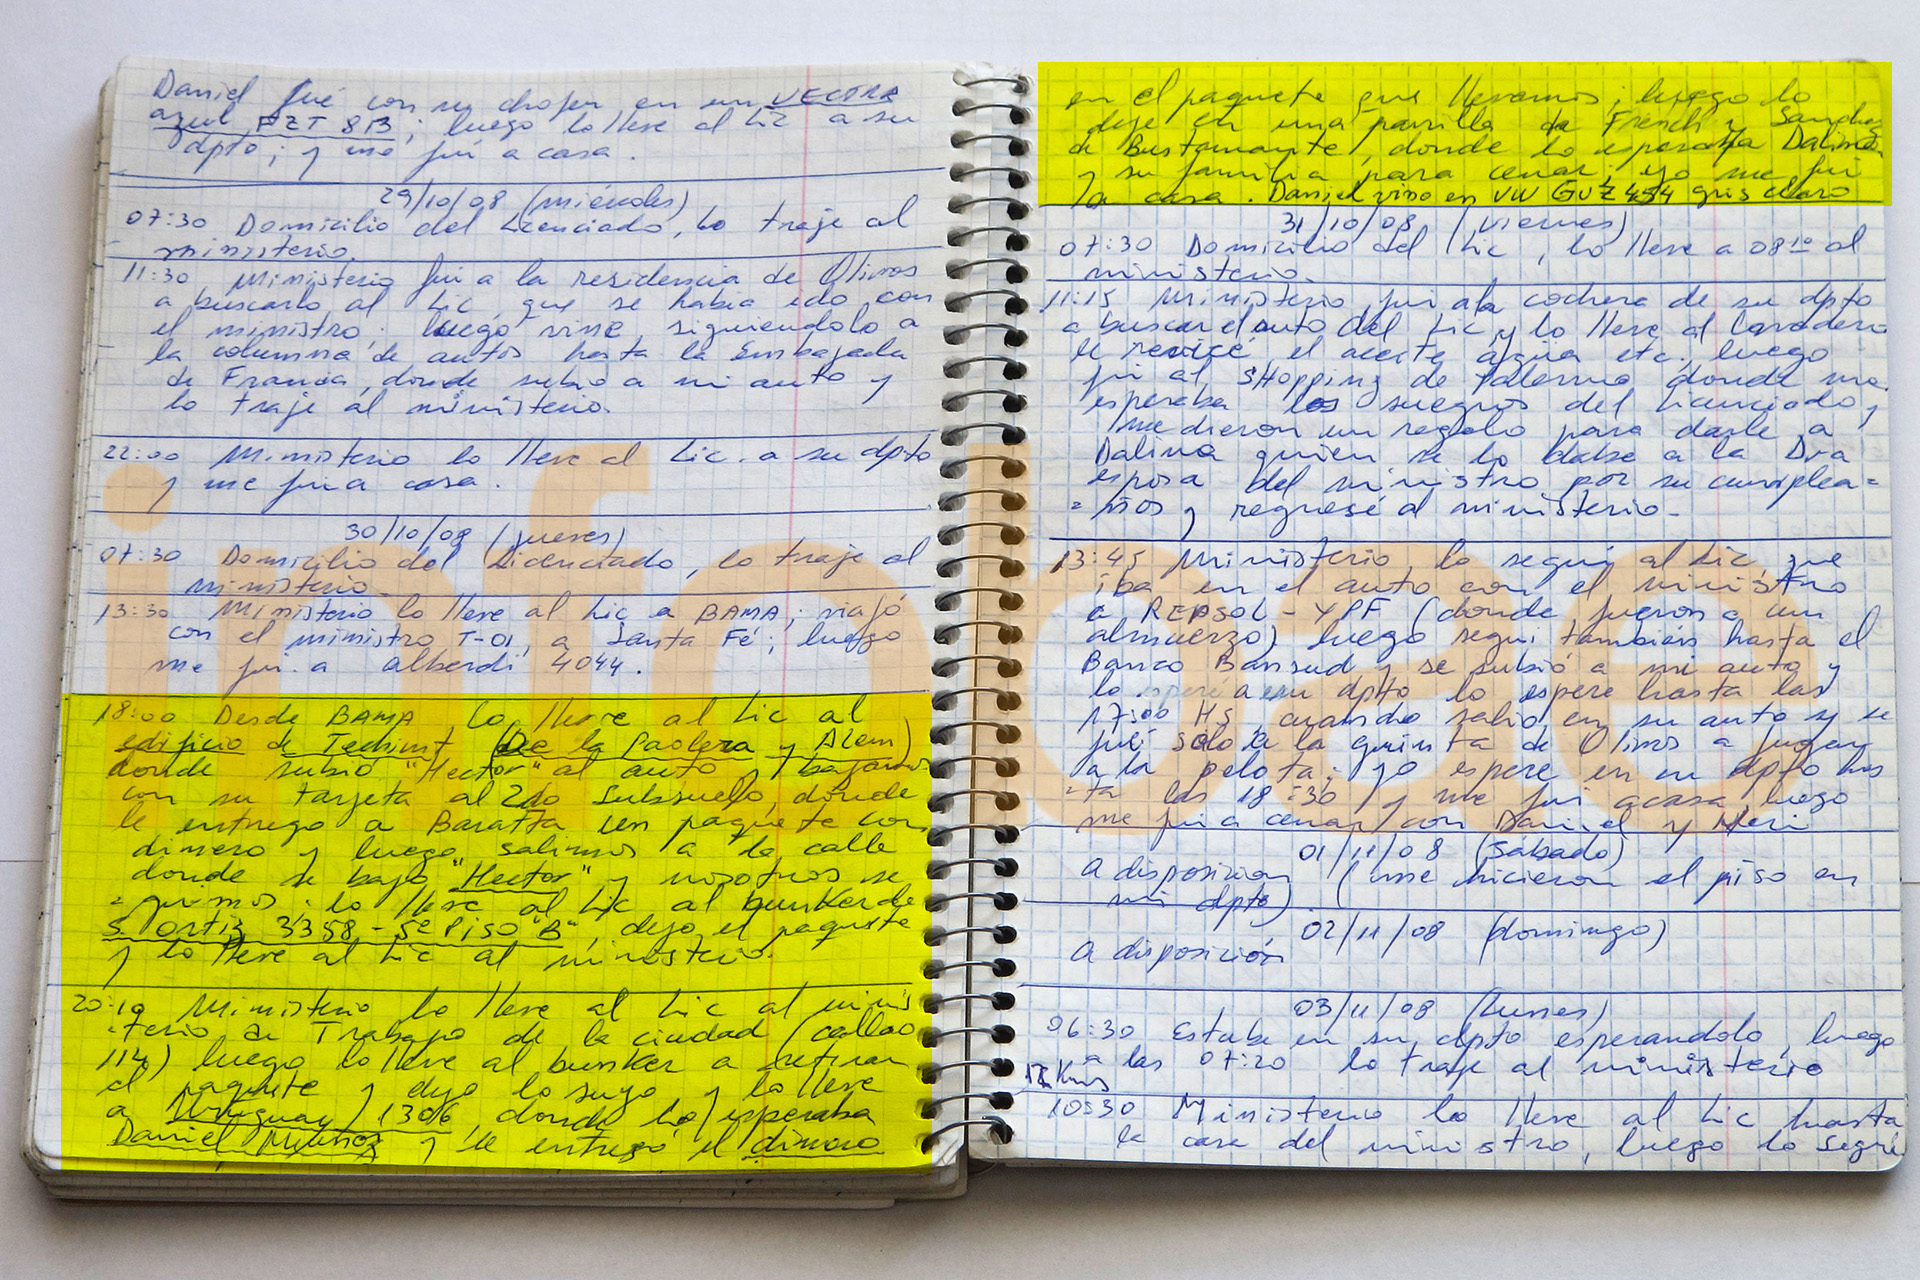 Daniel fué con su chofer en un VECTRA
azul FZT 813; luego lo lleve al Lic a su
dpto; y me fuí a casa.
29/10/08 (miércoles)
07:30 Domicilio del Licenciado, lo traje al
ministerio.
11:30 Ministerio fui a la residencia de Olivos
a buscarlo al Lic, que se habia ido con
el ministro; luego vine siguiendolo a
la columna de autos hasta la Embajada
de Francia, donde subio a mi auto y
lo traje al ministerio.
22:00 Ministerio lo lleve al Lic. a su dpto
y me fui a casa.
30/10/08 (jueves)
07:30 Domicilio del Licenciado, lo traje al
ministerio.
13:30 Ministerio lo lleve al Lic a BAMA; viajó
con el ministro T-01, a Santa Fé; luego
me fui a alberdi 4044.
18:00 Desde BAMA lo lleve al Lic al
edificio de Techint (De la Paolera y Alem)
donde subió "Hector" al auto y bajamos
con su tarjeta al 2do Subsuelo, donde
le entrego a Baratta un paquete con
dinero y luego salimos a la calle
donde se bajo "Hector" y nosotros se
=guimos. lo lleve al Lic al bunker de
S. Ortiz 3358 - 5º Piso "B", dejo el paquete
y lo lleve al Lic al ministerio.
20:10 Ministerio lo lleve al Lic al minis
-terio de Trabajo de la ciudad (callao
114) luego lo lleve al bunker a retirar
el paquete y dejo lo suyo y lo lleve
a Uruguay 1306 donde lo esperaba
Daniel Muñoz y le entregó el dinero
en el paquete que llevamos; luego lo
deje en una parrilla de French y Sanchez
de Bustamante, donde lo esperaba Dalina
y su familia para cenar; yo me fui
a casa. Daniel vino en VW GUZ 454 gris claro
31/10/08 (viernes)
07:30 Domicilio del Lic, lo lleve a 08:10 al
ministerio.
11:15 Ministerio fui a la cochera de su dpto
a buscar el auto del Lic y lo lleve al lavadero
le revicé el aceite, agüa etc, luego
fui al SHopping de Palermo donde me
esperaba los suegros del Licenciado y
me dieron un regalo para darle a
Dalina quien se lo daba a la Dra
esposa del ministro por su cumplea=
=ños y regresé al ministerio.
13:45 Ministerio, lo seguí al Lic, que
iba en el auto con el ministro
a REPSOL - YPF (donde fueron a un
almuerzo) luego segui tambien hasta el
Banco Bansud y se subió a mi auto y
lo esperé a en dpto lo espere hasta las
17:00 HS, cuando salio en su auto y se
fué solo a la quinta de Olivos a jugar
a la pelota; yo espere en su dpto has
-ta las 18:30 y me fui a casa, luego
me fui a cenar con Daniel y Meri
01/11/08 (Sabado)
a disposicion (me hicieron el piso en
mi dpto)
02/11/08 (domingo)
a disposición
03/11/08 (Lunes)
06:30 Estuve en su dpto esperandolo, luego
a las 07:20 lo traje al ministerio
12 Kms
10:30 Ministerio lo lleve al Lic hasta
la casa del ministro, luego lo seguí
infobae